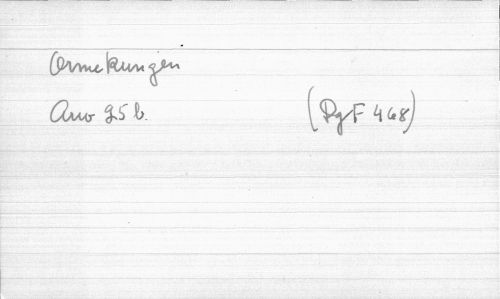 Ormekungen
Auv 95b. (DgF 468)